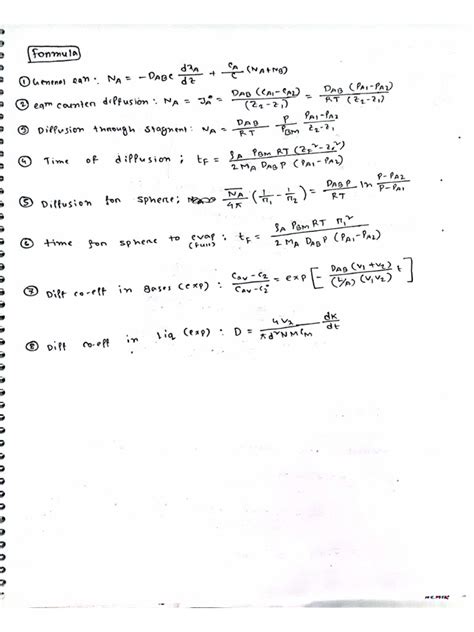 Formula
① General eqn: N_A = -D_AB C dx_A/dz + C_A/C (N_A+N_B)
② eqm counter diffusion: N_A = J_A* = D_AB (C_A1 - C_A2)/(Z_2 - Z_1) = D_AB (P_A1 - P_A2)/RT (Z_2 - Z_1)
③ Diffusion through stagnent: N_A = D_AB/RT P/P_BM P_A1 - P_A2/Z_2 - Z_1
④ Time of diffusion; t_F = ρ_A P_BM RT (Z_F² - Z_0²)/2 M_A D_AB P (P_A1 - P_A2)
⑤ Diffusion for sphere; N_A/4π (1/r_1 - 1/r_2) = D_AB P/RT ln P-P_A2/P-P_A1
⑥ time for sphere to evap (full) : t_F = ρ_A P_BM RT r_1²/2 M_A D_AB P (P_A1 - P_A2)
⑦ Diff co-eff in gases (exp) : C_av - C_2/C_av - C_2° = exp [- D_AB (V_1 + V_2)/(L/A) (V_1 V_2) t]
⑧ Diff co-eff in liq (exp) : D = 4V_2/πd²NMC_M dk/dt